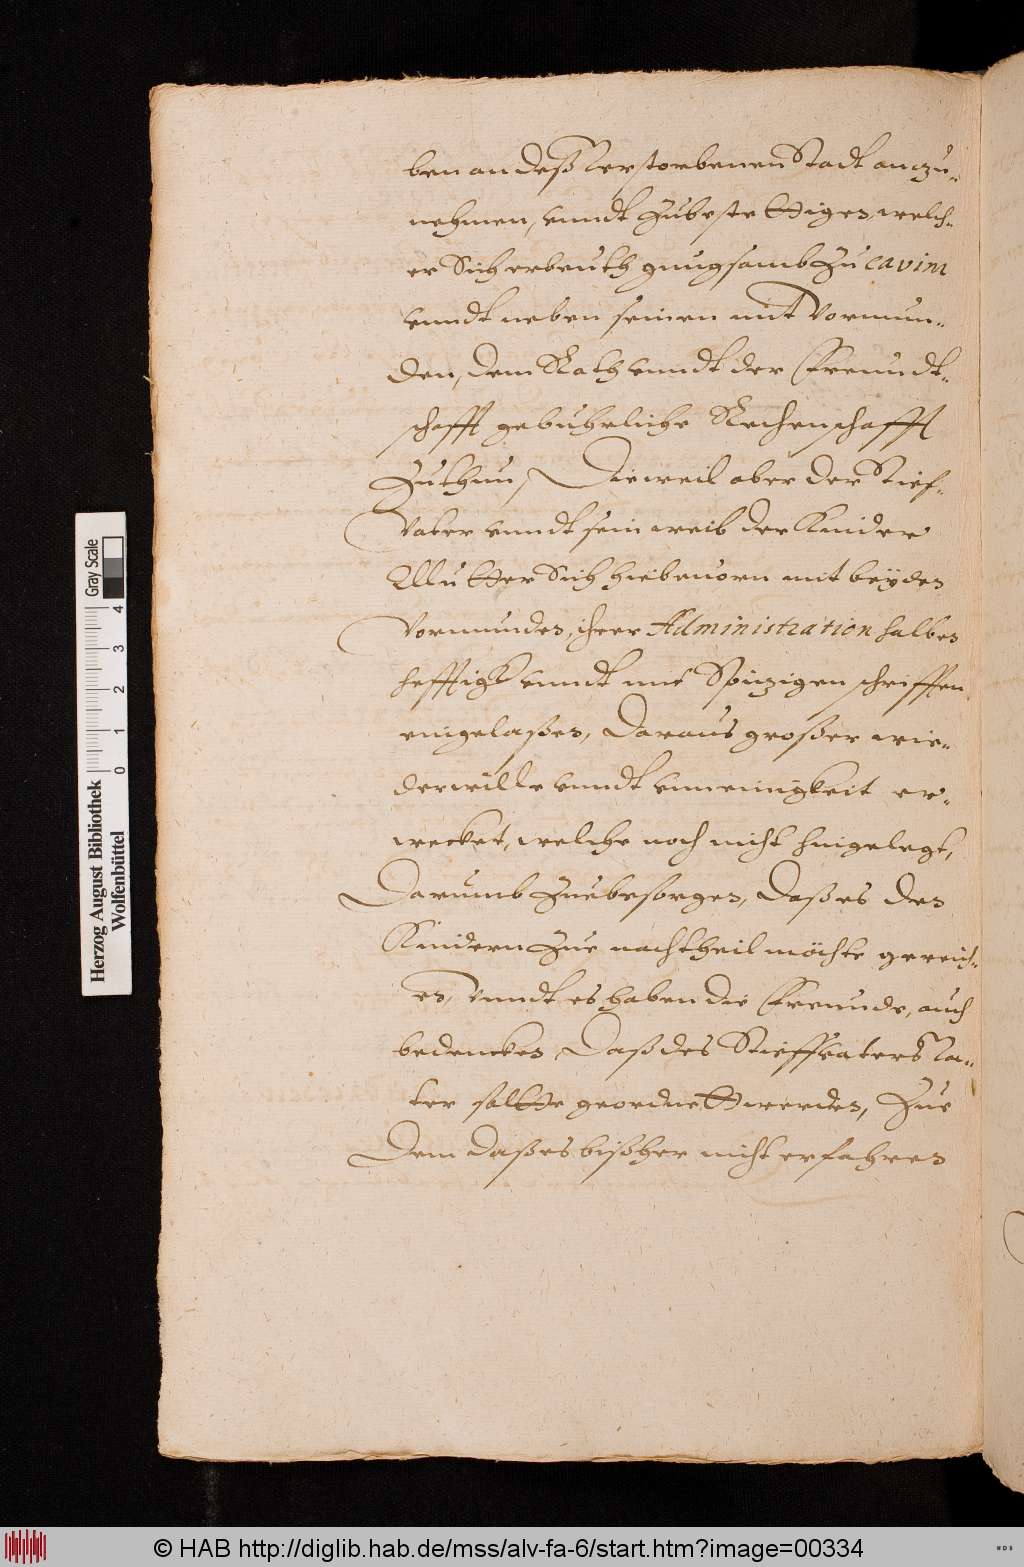 ben an deß Verstorbenen Stadt anzu-
nehmen, vnndt zubestettigen, welch-
er Sich erbeuth gnugsamb zu cavirn
vnndt neben seinen mit Vormun-
den, dem Rath vnndt der Freundt-
schafft gebuhrliche Rechenschafft
zuthun, Dieweil aber der Stief-
Vater vnndt sein weib der Kinder
Mutter Sich hiebeuorn mit beÿden
Vormunden, ihrer Administration halben
hefftigk vnndt mit Spitzigen schrifften
eingelaßen, Daraus großer wie-
derwille vnndt vnneinigkeit er-
wecket, welche noch nicht hingelegt,
Darumb zuebesorgen, Daß es den
Kindern zue nachtheil möchte gereich-
en, Vnndt es haben die Freunde, auch
bedencken, Daß des Stieffvaters Va-
ter sollte geordnett werden, Zue
Dem daß es bißher nicht erfahren
Herzog August Bibliothek
Wolfenbüttel
Gray Scale
0 1 2 3 4
© HAB http://diglib.hab.de/mss/alv-fa-6/start.htm?image=00334